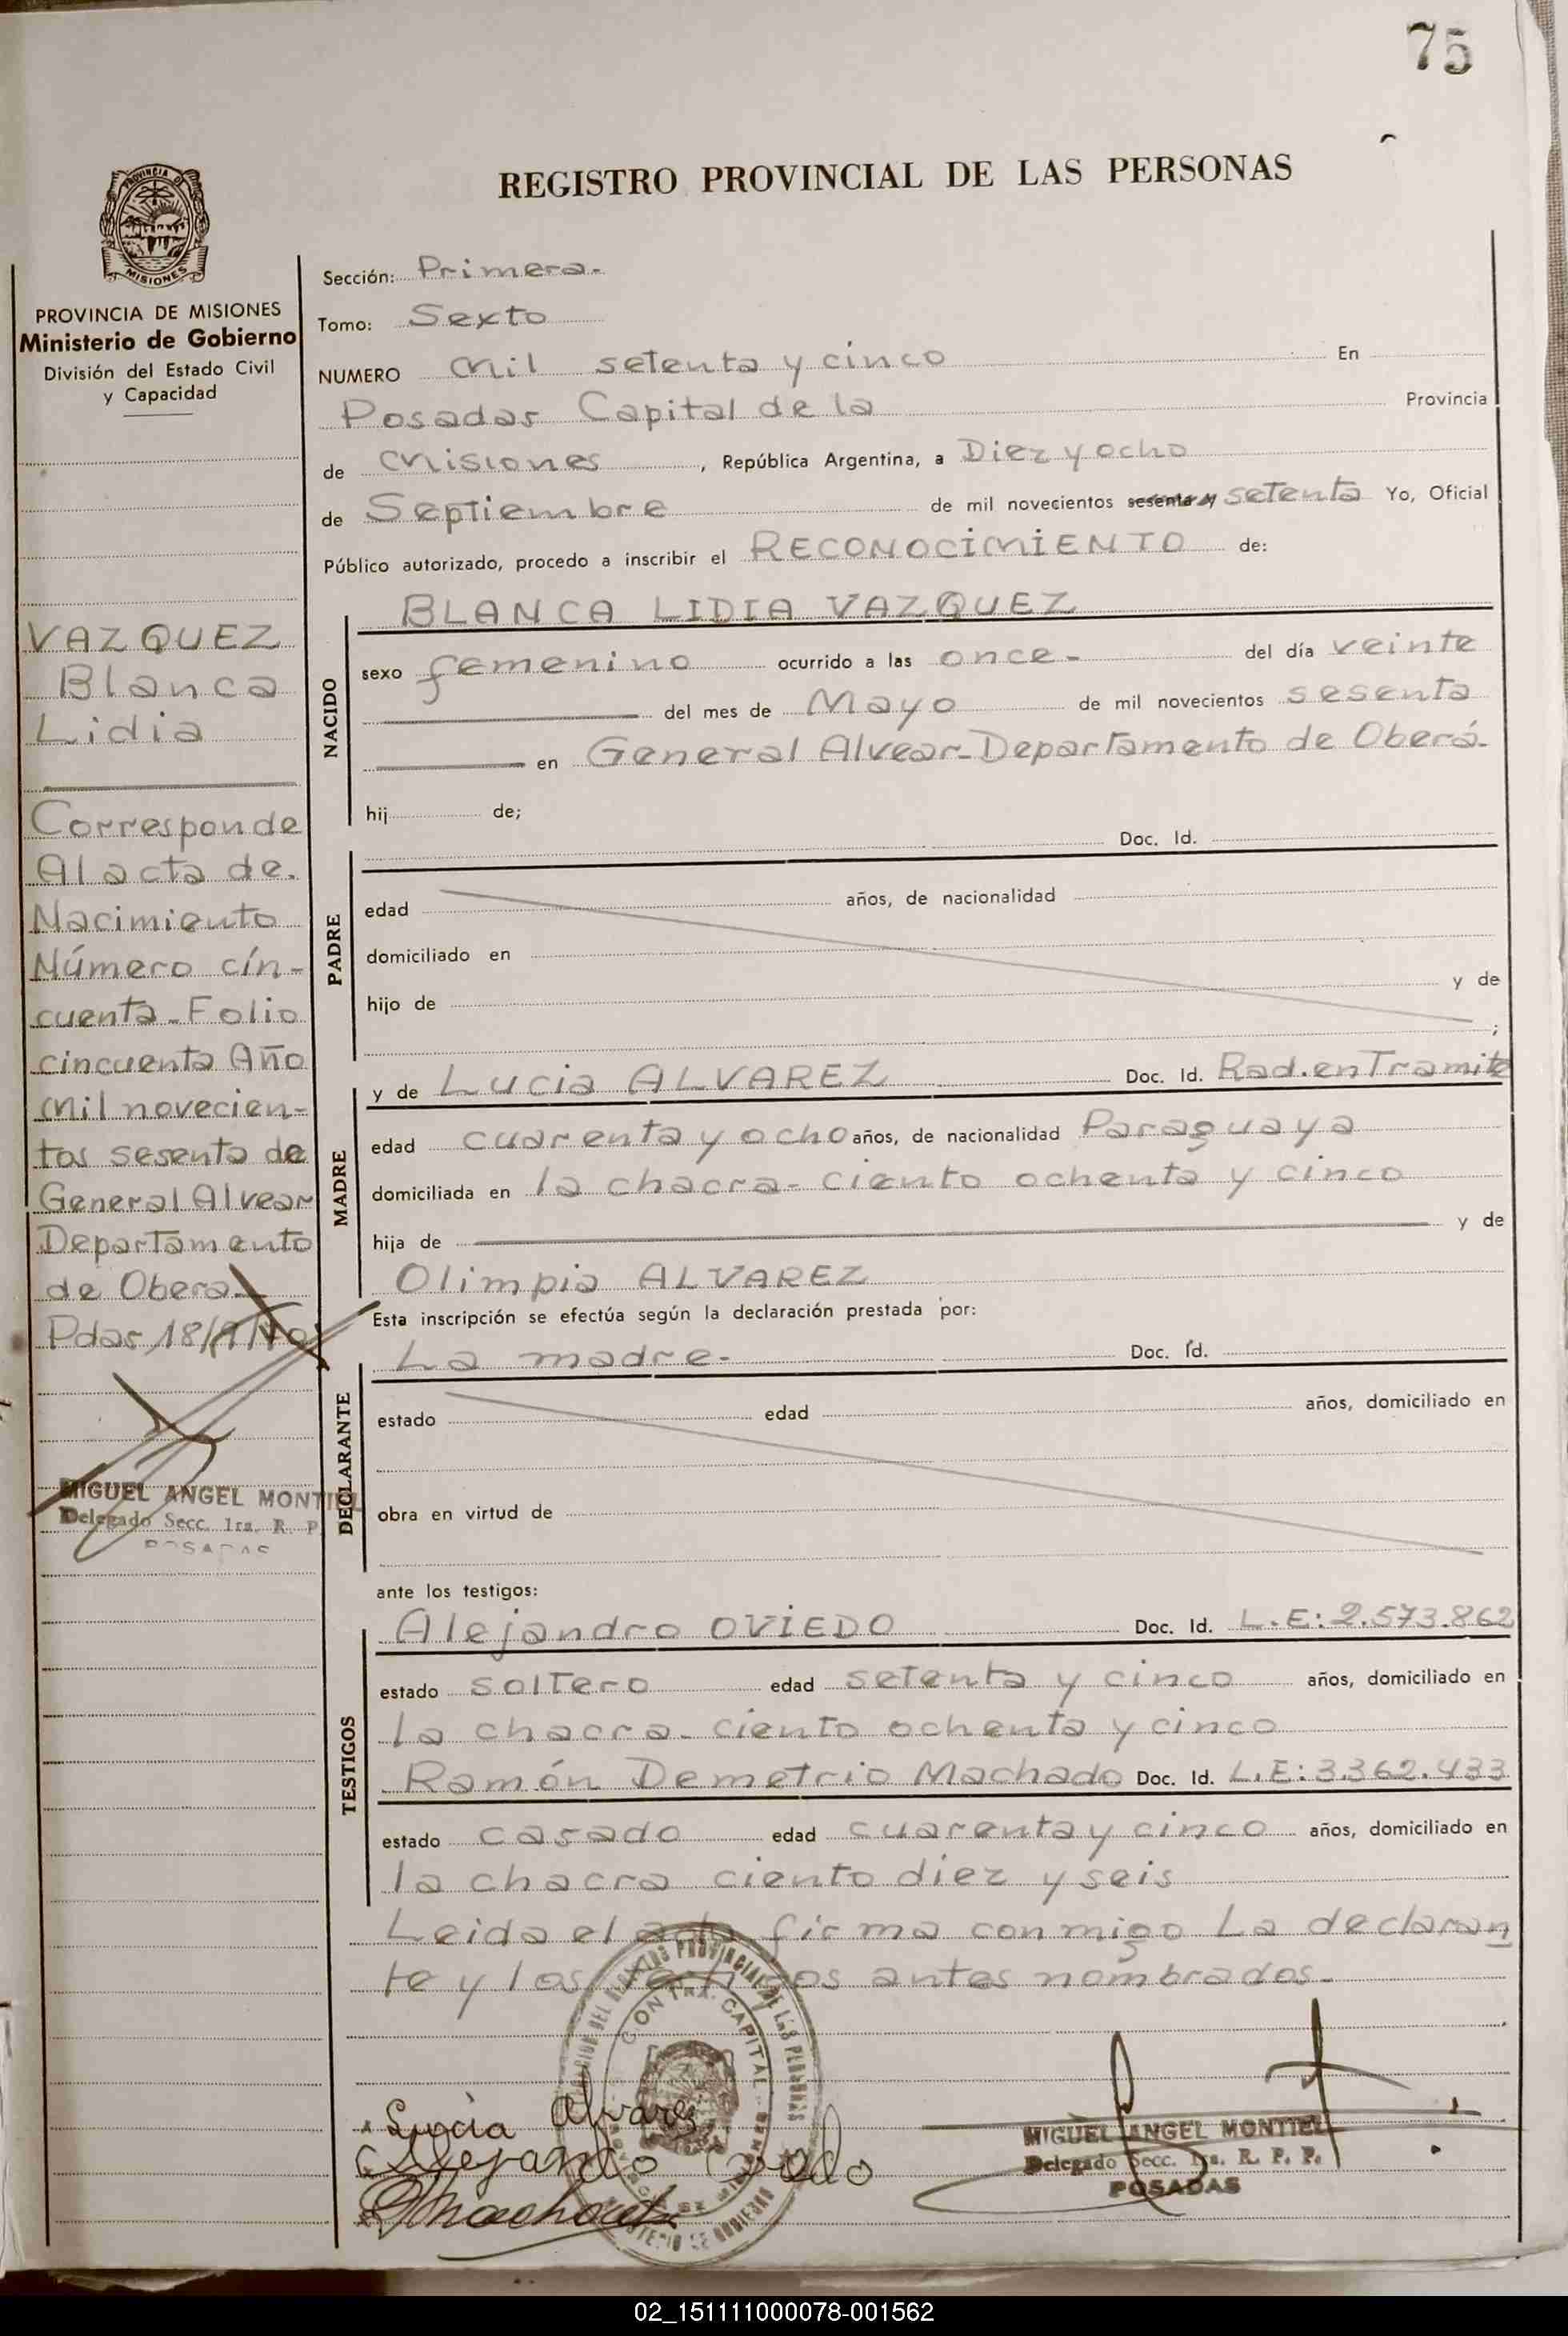 75
REGISTRO PROVINCIAL DE LAS PERSONAS
PROVINCIA DE MISIONES
PROVINCIA DE MISIONES
Ministerio de Gobierno
División del Estado Civil
y Capacidad
VAZQUEZ
Blanca
Lidia
Corresponde
Al acta de.
Nacimiento
Número cín-
cuenta - Folio
cincuenta Año
mil novecien-
tos sesenta de
General Alvear
Departamento
de Obera -
Pdas, 18/9/70
MIGUEL ANGEL MONTIEL
Delegado Secc. 1ra. R. P.
POSADAS
Sección: Primera.-
Tomo: Sexto
NUMERO Mil setenta y cinco En
Posadas Capital de la Provincia
de Misiones, República Argentina, a Diez y ocho
de Septiembre de mil novecientos sesenta y setenta Yo, Oficial
Público autorizado, procedo a inscribir el RECONOCIMIENTO de:
NACIDO
BLANCA LIDIA VAZQUEZ
sexo femenino ocurrido a las once - del día veinte
del mes de Mayo de mil novecientos sesenta
en General Alvear - Departamento de Oberá -
hij de;
PADRE
Doc. Id.
edad años, de nacionalidad
domiciliado en
hijo de y de
;
MADRE
y de Lucia ALVAREZ Doc. Id. Rad. en Tramite
edad cuarenta y ocho años, de nacionalidad Paraguaya
domiciliada en la chacra - ciento ochenta y cinco
hija de y de
Olimpia ALVAREZ
Esta inscripción se efectúa según la declaración prestada por:
DECLARANTE
La madre - Doc. Id.
estado edad años, domiciliado en
obra en virtud de
ante los testigos:
TESTIGOS
Alejandro OVIEDO Doc. Id. L.E: 2.573.862
estado soltero edad setenta y cinco años, domiciliado en
la chacra - ciento ochenta y cinco
Ramón Demetrio Machado Doc. Id. L.E: 3.362.433
estado casado edad cuarenta y cinco años, domiciliado en
la chacra ciento diez y seis
Leida el acta firma conmigo La declaran
te y los testigos antes nombrados -
Lucia Alvarez
Alejandro
Machado
MIGUEL ANGEL MONTIEL
Delegado Secc. 1ra. R. P. P.
POSADAS
02_151111000078-001562